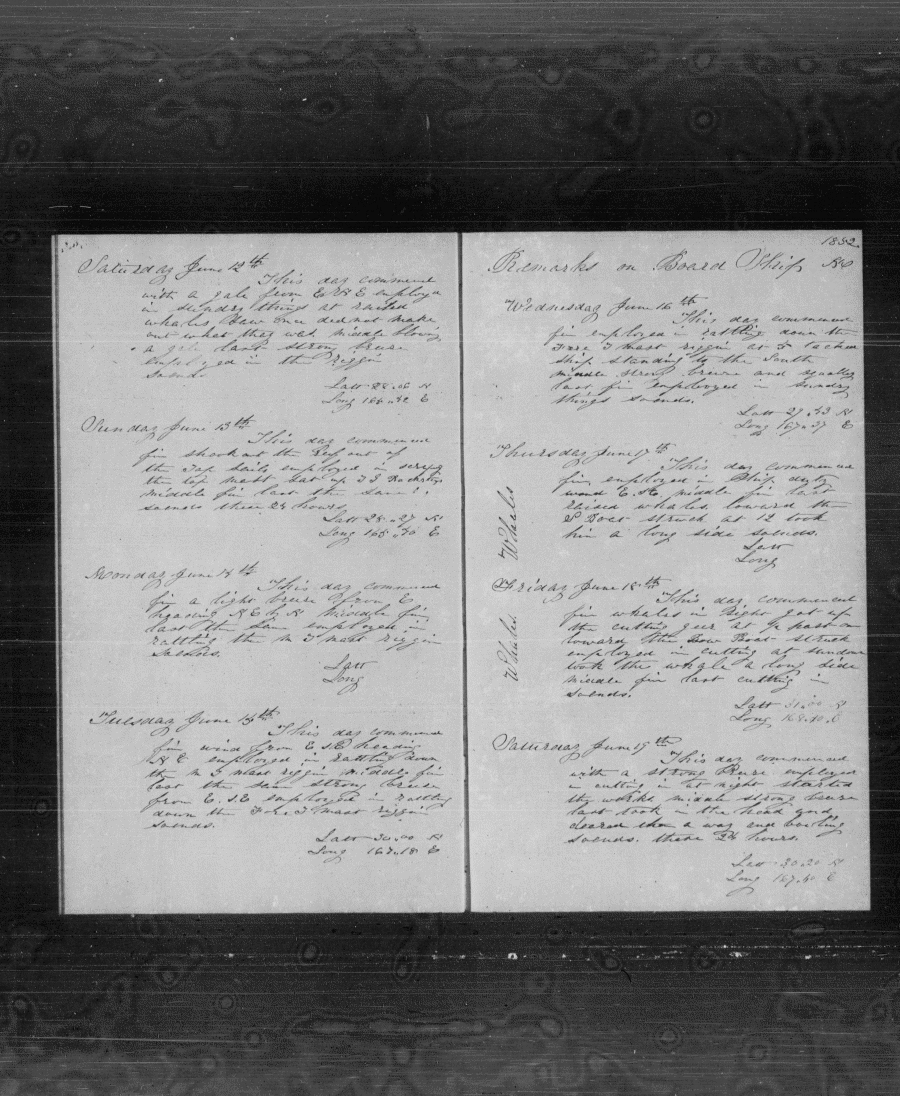 Saturday June 12th
This day commenced
with a gale from E N E employed
in sundry things at raised
whales once did not make
out what they was middle blowing
a gale last strong breeze
employed in the riggin
soends.
Latt 28..08 N
Long 166..42 E
Sunday June 13th
This day commenced
fin shook out the Reef out of
the top sails employed in
the top mast
middle fin last the same
soends these 24 hours
Latt 28..27 N
Long 165..40 E
Monday June 14th
This day commenced
fin a light breeze from E
heading N E by N middle fin
last the same employed in
rattling the m T mast riggin
soends.
Latt
Long
Tuesday June 15th
This day commenced
fin wind from E S E heading
N E employed in rattling down
the m T mast riggin middle fin
last the same strong breeze
from E. S. E employed in rattling
down the Fore T mast riggin
soends.
Latt 30..00 N
Long 167..18 E
1852
Remarks on Board Ship
Wednesday June 16th
This day commenced
fin employed in rattling down the
Fore T mast riggin at 5 tacked
ship standing to the South
middle strong breeze and squally
last fin employed in sundry
things soends.
Latt 29..43 N
Long 167..37 E
Thursday June 17th
This day commenced
fin employed in Ship duty
wind E. middle fin last
raised whales lowered the
Boat struck at 12 took
him a long side soends.
Latt
Long
Whales
Friday June 18th
This day commenced
fin whales in Sight got up
the cutting geer at
lowered the Bow Boat struck
employed in cutting at sundown
took the whale a long side
middle fin last cutting in
soends.
Latt 31..00 N
Long 168..10 E
Whales
Saturday June 19th
This day commenced
with a strong Breeze employed
in cutting in at night started
the works middle strong breeze
last took in the head
cleared them a way and boiling
soends. these 24 hours.
Latt 30..20 N
Long 167..40 E